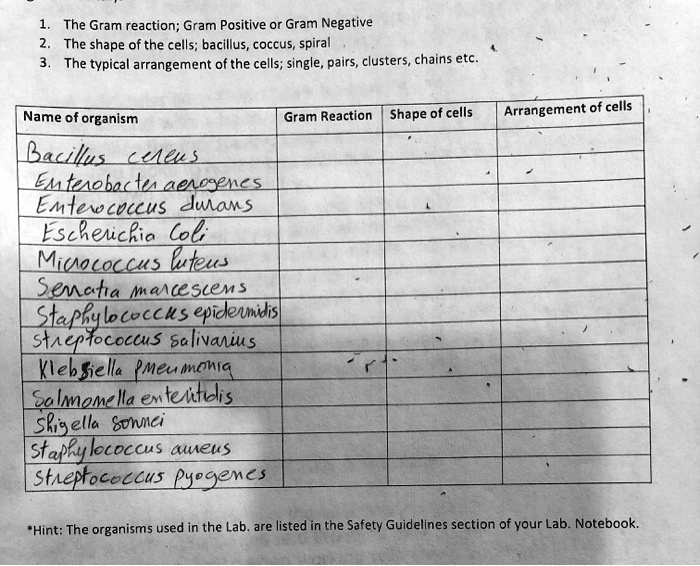 1. The Gram reaction; Gram Positive or Gram Negative
2. The shape of the cells; bacillus, coccus, spiral
3. The typical arrangement of the cells; single, pairs, clusters, chains etc.
Name of organism Gram Reaction Shape of cells Arrangement of cells
Bacillus cereus
Enterobacter aerogenes
Enterococcus durans
Escherichia Coli
Micrococcus luteus
Serratia marcescens
Staphylococcus epidermidis
Streptococcus salivarius
Klebsiella Pneumonia
Salmonella enteritidis
Shigella sonnei
Staphylococcus aureus
Streptococcus Pyogenes
*Hint: The organisms used in the Lab. are listed in the Safety Guidelines section of your Lab. Notebook.